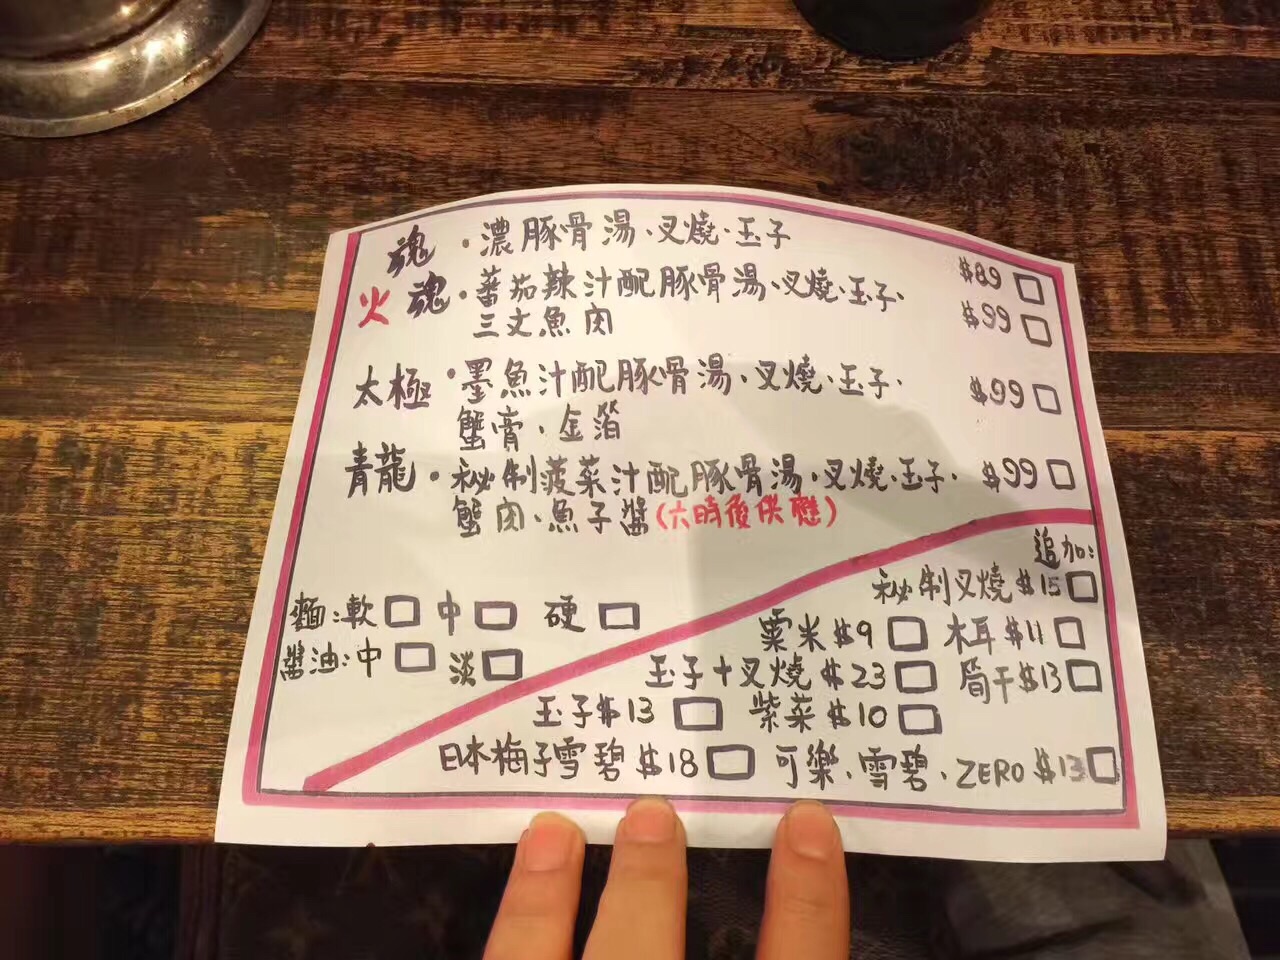 魂·濃豚骨湯、叉燒、玉子 $89
火魂·蕃茄辣汁配豚骨湯、叉燒、玉子、 $99
三文魚肉
太極·墨魚汁配豚骨湯、叉燒、玉子、 $99
蟹膏、金箔
青龍·秘制菠菜汁配豚骨湯、叉燒、玉子、 $99
蟹肉、魚子醬(六時後供應)
追加:
秘制叉燒 $15
麵:軟 中 硬
粟米 $9 木耳 $11
醬油:中 淡
玉子+叉燒 $23 筍干 $13
玉子 $13 紫菜 $10
日本梅子雪碧 $18 可樂、雪碧、ZERO $13